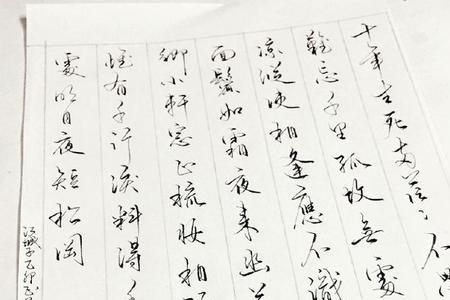 十年生死两茫々不
难忘千里孤坟无处
凉纵使相逢应不识
面鬓如霜夜来幽
乡小轩窗正梳妆相
惟有千行泪料得
处明月夜短松冈
江城子乙卯正月